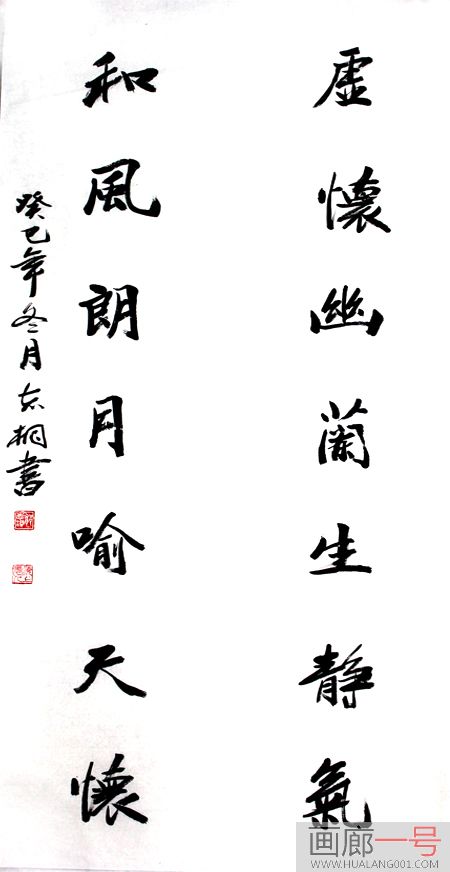 虛懷幽蘭生靜氣
和風朗月喻天懷
癸巳年冬月志桐書
画廊一号
WWW.HUALANG001.COM